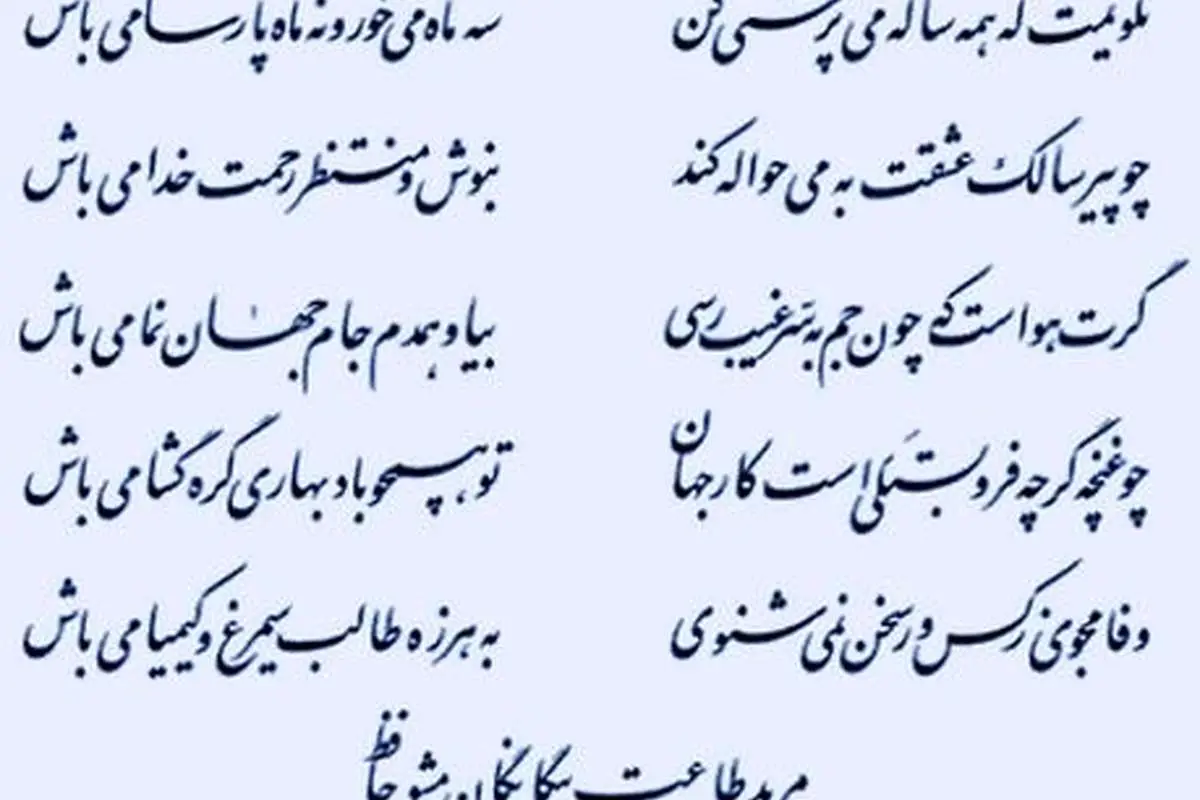 نگویمت که همه ساله می پرستی کن سه ماه می خور و نه ماه پارسا می باش
چو پیر سالک عشقت به می حواله کند بنوش و منتظر رحمت خدا می باش
گرت هواست که چون جم به سّر غیب رسی بیا و همدم جام جهان نما می باش
چو غنچه گرچه فروبستگی است کار جهان تو همچو باد بهاری گره گشا می باش
وفا مجوی ز کس ور سخن نمی شنوی به هرزه طالب سیمرغ و کیمیا می باش
مرید طاعت بیگانگان مشو حافظ